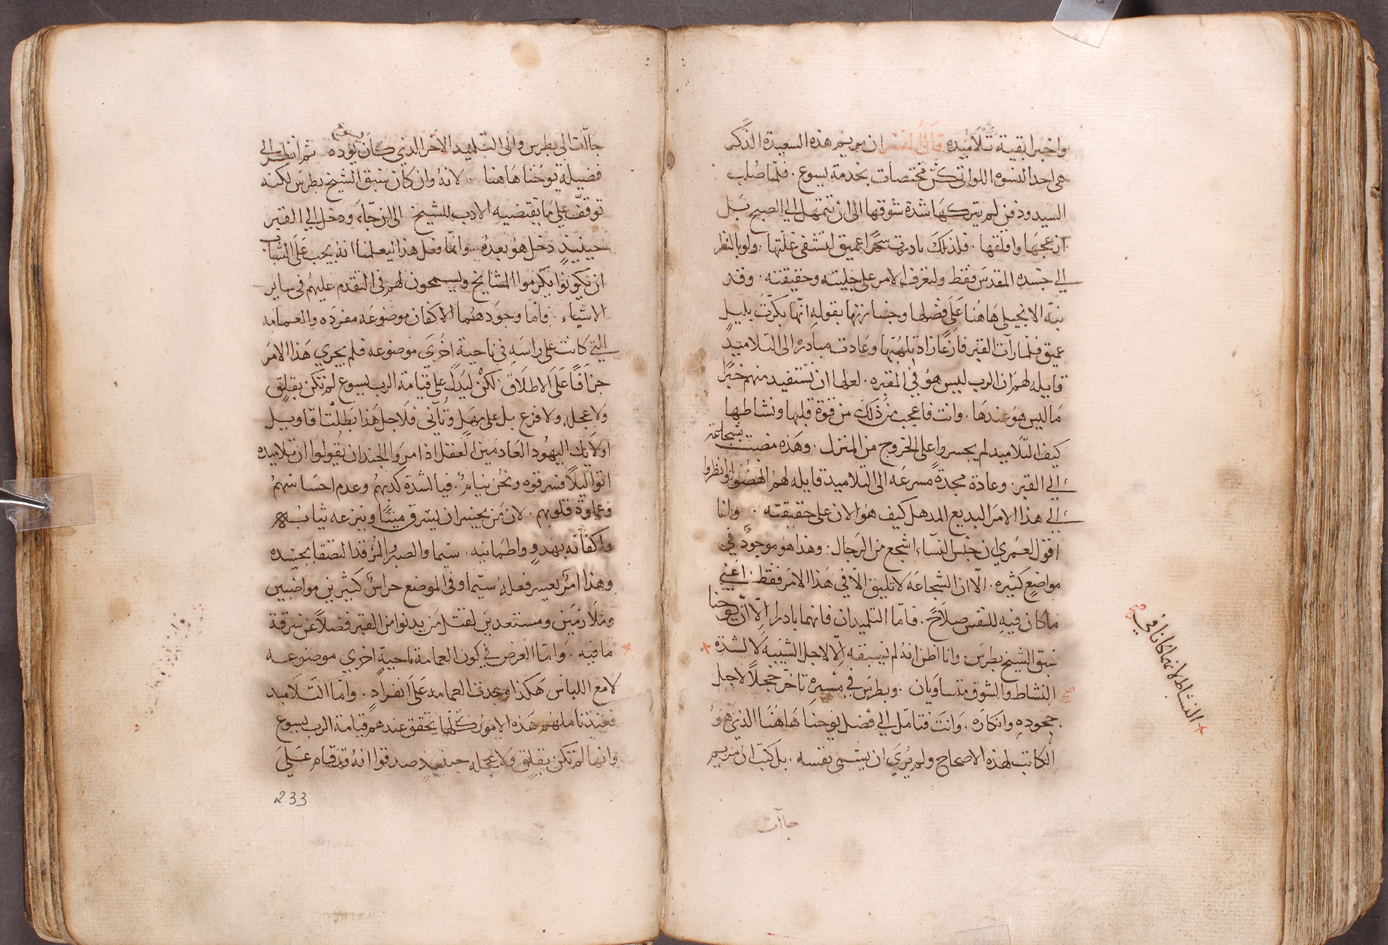 واخبرا بقية تلاميذه قال المفسر ان مريم هذه السعيدة الذكر
هي احد النسوه اللواتي كن مختصات بخدمة يسوع. فلما صلب
السيد ودفن لم يتركها شدة شوقها الى ان تتمهل الى الصبح بل
ازعجها واقلقها. فلذلك بادرت سحرا عميق لتشفى غلتها. ولو بالنظر
الى جسده المقدس فقط ولتعرف الامر على جليته وحقيقته. وقد
نبه الانجيلي هاهنا على فضلها وجسارتها بقوله انها بكرت بليل
عميق فلما رات القبر فارغا زاد تلهبها وعادت مبادره الى التلاميذ
قايله لهم ان الرب ليس هو في المقبره. لعلها ان تستفيد منهم خبرا
ما ليس هو عندها. وانت فاعجب من ذلك من قوة قلبها ونشاطها
كيف التلاميذ لم يجسروا على الخروج من المنزل. وهذه مضت بشجاعة
الى القبر. وعادة مجدة مسرعه الى التلاميذ قايله لهم انهضوا وانظروا
الى هذا الامر البديع المدهل كيف هو الان على حقيقته. وانا
اقول لعمري ان جنس النساء اشجع من الرجال. وهذا هو موجود في
مواضع كثيره. الا ان الشجاعة لا تليق الا في هذا الامر فقط. اعني
ما كان فيه للنفس صلاح. فاما التلميذان فانهما بادرا الا ان يوحنا
سبق الشيخ بطرس. وانا اظن انه لم يسبقه الا لاجل الشيبة لا لشدة
النشاط والشوق متساويان. وبطرس في مسيره تاخر خجلا لاجل
جحوده وانكاره. وانت فتامل الى فضل يوحنا هاهنا الذي هو
الكاتب لهذه الاصحاح ولم يري ان يسمى نفسه. بل كتب ان مريم
جاات
النشاط لانهما كانا في
جاات الى بطرس والى التلميذ الاخر الذي كان يسوع يوده. ثم انظر الى
فضيلة يوحنا هاهنا. لانه وان كان سبق الشيخ بطرس لكنه
توقف على ما يقتضيه الادب للشيخ الى ان جاء ودخل الى القبر
حينيذ دخل هو بعده. وانما فعل هذا ليعلمنا انه يجب على الشباب
ان يكونوا يكرموا المشايخ ويسمحون لهم في التقدم عليهم في ساير
الاشياء. فاما وجودهما الاكفان موضوعه مفرده والعمامه
التي كانت على راسه في ناحية اخرى موضوعه فلم يجري هذا الامر
جزافا على الاطلاق لكن ليدل على قيامة الرب يسوع لم تكن بقلق
ولا عجل ولا فزع بل على مهل وتأني فلاجل هذا بطلت اقاويل
اولايك اليهود العادمين العقل اذ امروا الجند ان يقولوا ان تلاميذه
اتوا ليلا فسرقوه ونحن نيام. فيا لشدة كدبهم وعدم احساسهم
وغباوة قلوبهم. لان من يجسر ان يسرق ميتا وينزعه ثيابه
واكفانه بهدو واطمانيه. سيما والصبر والمر قد التصقا بجسده
وهذا امر يعسر فعله سيما وفي الموضع حراس كثيرين مواضبين
وملازمين ومستعدين لقتل من يدنوا من القبر فضلا عن سرقة
ما فيه. واما الغرض في كون العمامة ناحية اخري موضوعه
لا مع اللباس هكذا وجدت العمامه على انفراد. واما التلاميذ
فعند تاملهم هذه الامور كلها تحقق عندهم قيامة الرب يسوع
وانها لم تكن بقلق ولا عجله حينيذ صدقوا انه قد قام على
233